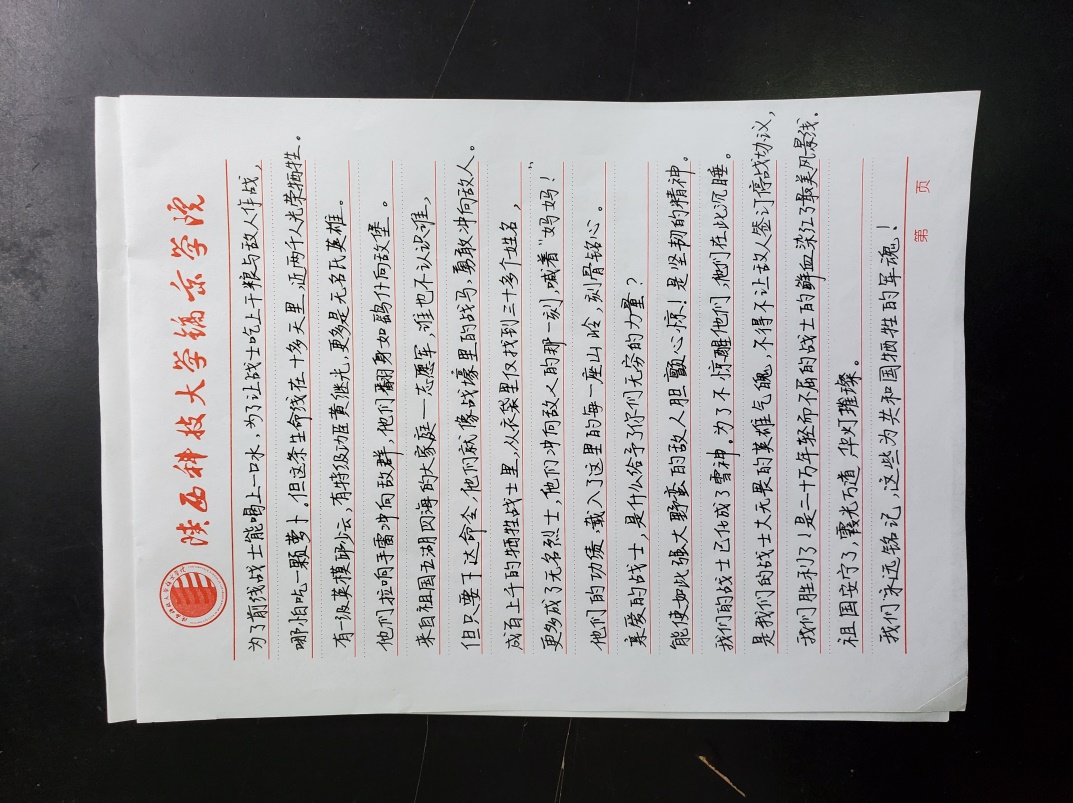 陕西科技大学镐京学院
为了前线战士能喝上一口水,为了让战士吃上干粮与敌人作战,
哪怕吃一颗萝卜。但这条生命线在十多天里,近两千人光荣牺牲。
有一级英模邱少云,有特级功臣黄继光,更多是无名氏英雄。
他们拉响手雷冲向敌群,他们翻身如鹞仆向敌堡。
来自祖国五湖四海的大家庭一志愿军,谁也不认识谁,
但只要下达命令,他们就像战壕里的战马,勇敢冲向敌人。
成百上千的牺牲战士里,从衣袋里仅找到三十多个姓名,
更多成了无名烈士,他们冲向敌人的那一刻,喊着"妈妈!"
他们的功绩,载入了这里的每一座山岭,刻骨铭心。
亲爱的战士,是什么给予了你们无穷的力量?
能使如此强大野蛮的敌人胆颤心惊!是坚韧的精神。
我们的战士已化成了雪神,为了不惊醒他们,他们在此沉睡。
是我们的战士大无畏的英雄气魄,不得不让敌人签订停战协议,
我们胜利了!是二十万年轻而不屈的战士的鲜血染红了最美风景线。
祖国安宁了,霞光万道,华灯璀璨。
我们永远铭记,这些为共和国牺牲的军魂!
第 页